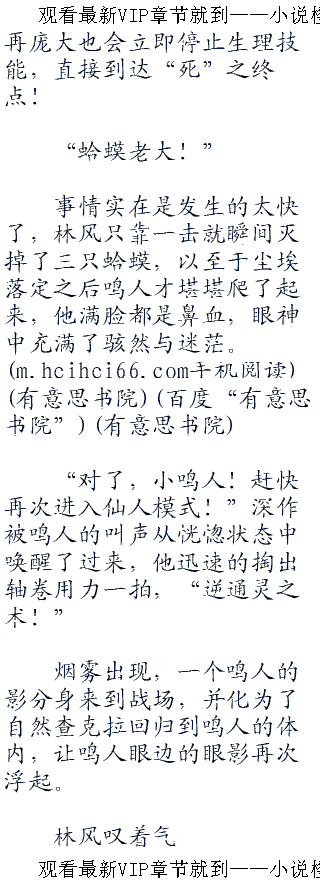 观看最新VIP章节就到——小说楼
再庞大也会立即停止生理技
能，直接到达“死”之终
点！
“蛤蟆老大！”
事情实在是发生的太快
了，林风只靠一击就瞬间灭
掉了三只蛤蟆，以至于尘埃
落定之后鸣人才堪堪爬了起
来，他满脸都是鼻血，眼神
中充满了骇然与迷茫。
(m.hcihci66.com手机阅读)
(有意思书院)(百度“有意思
书院”)(有意思书院)
“对了，小鸣人！赶快
再次进入仙人模式！”深作
被鸣人的叫声从恍惚状态中
唤醒了过来，他迅速的掏出
轴卷用力一拍，“逆通灵之
术！”
烟雾出现，一个鸣人的
影分身来到战场，并化为了
自然查克拉回归到鸣人的体
内，让鸣人眼边的眼影再次
浮起。
林风叹着气
观看最新VIP章节就到——小说楼